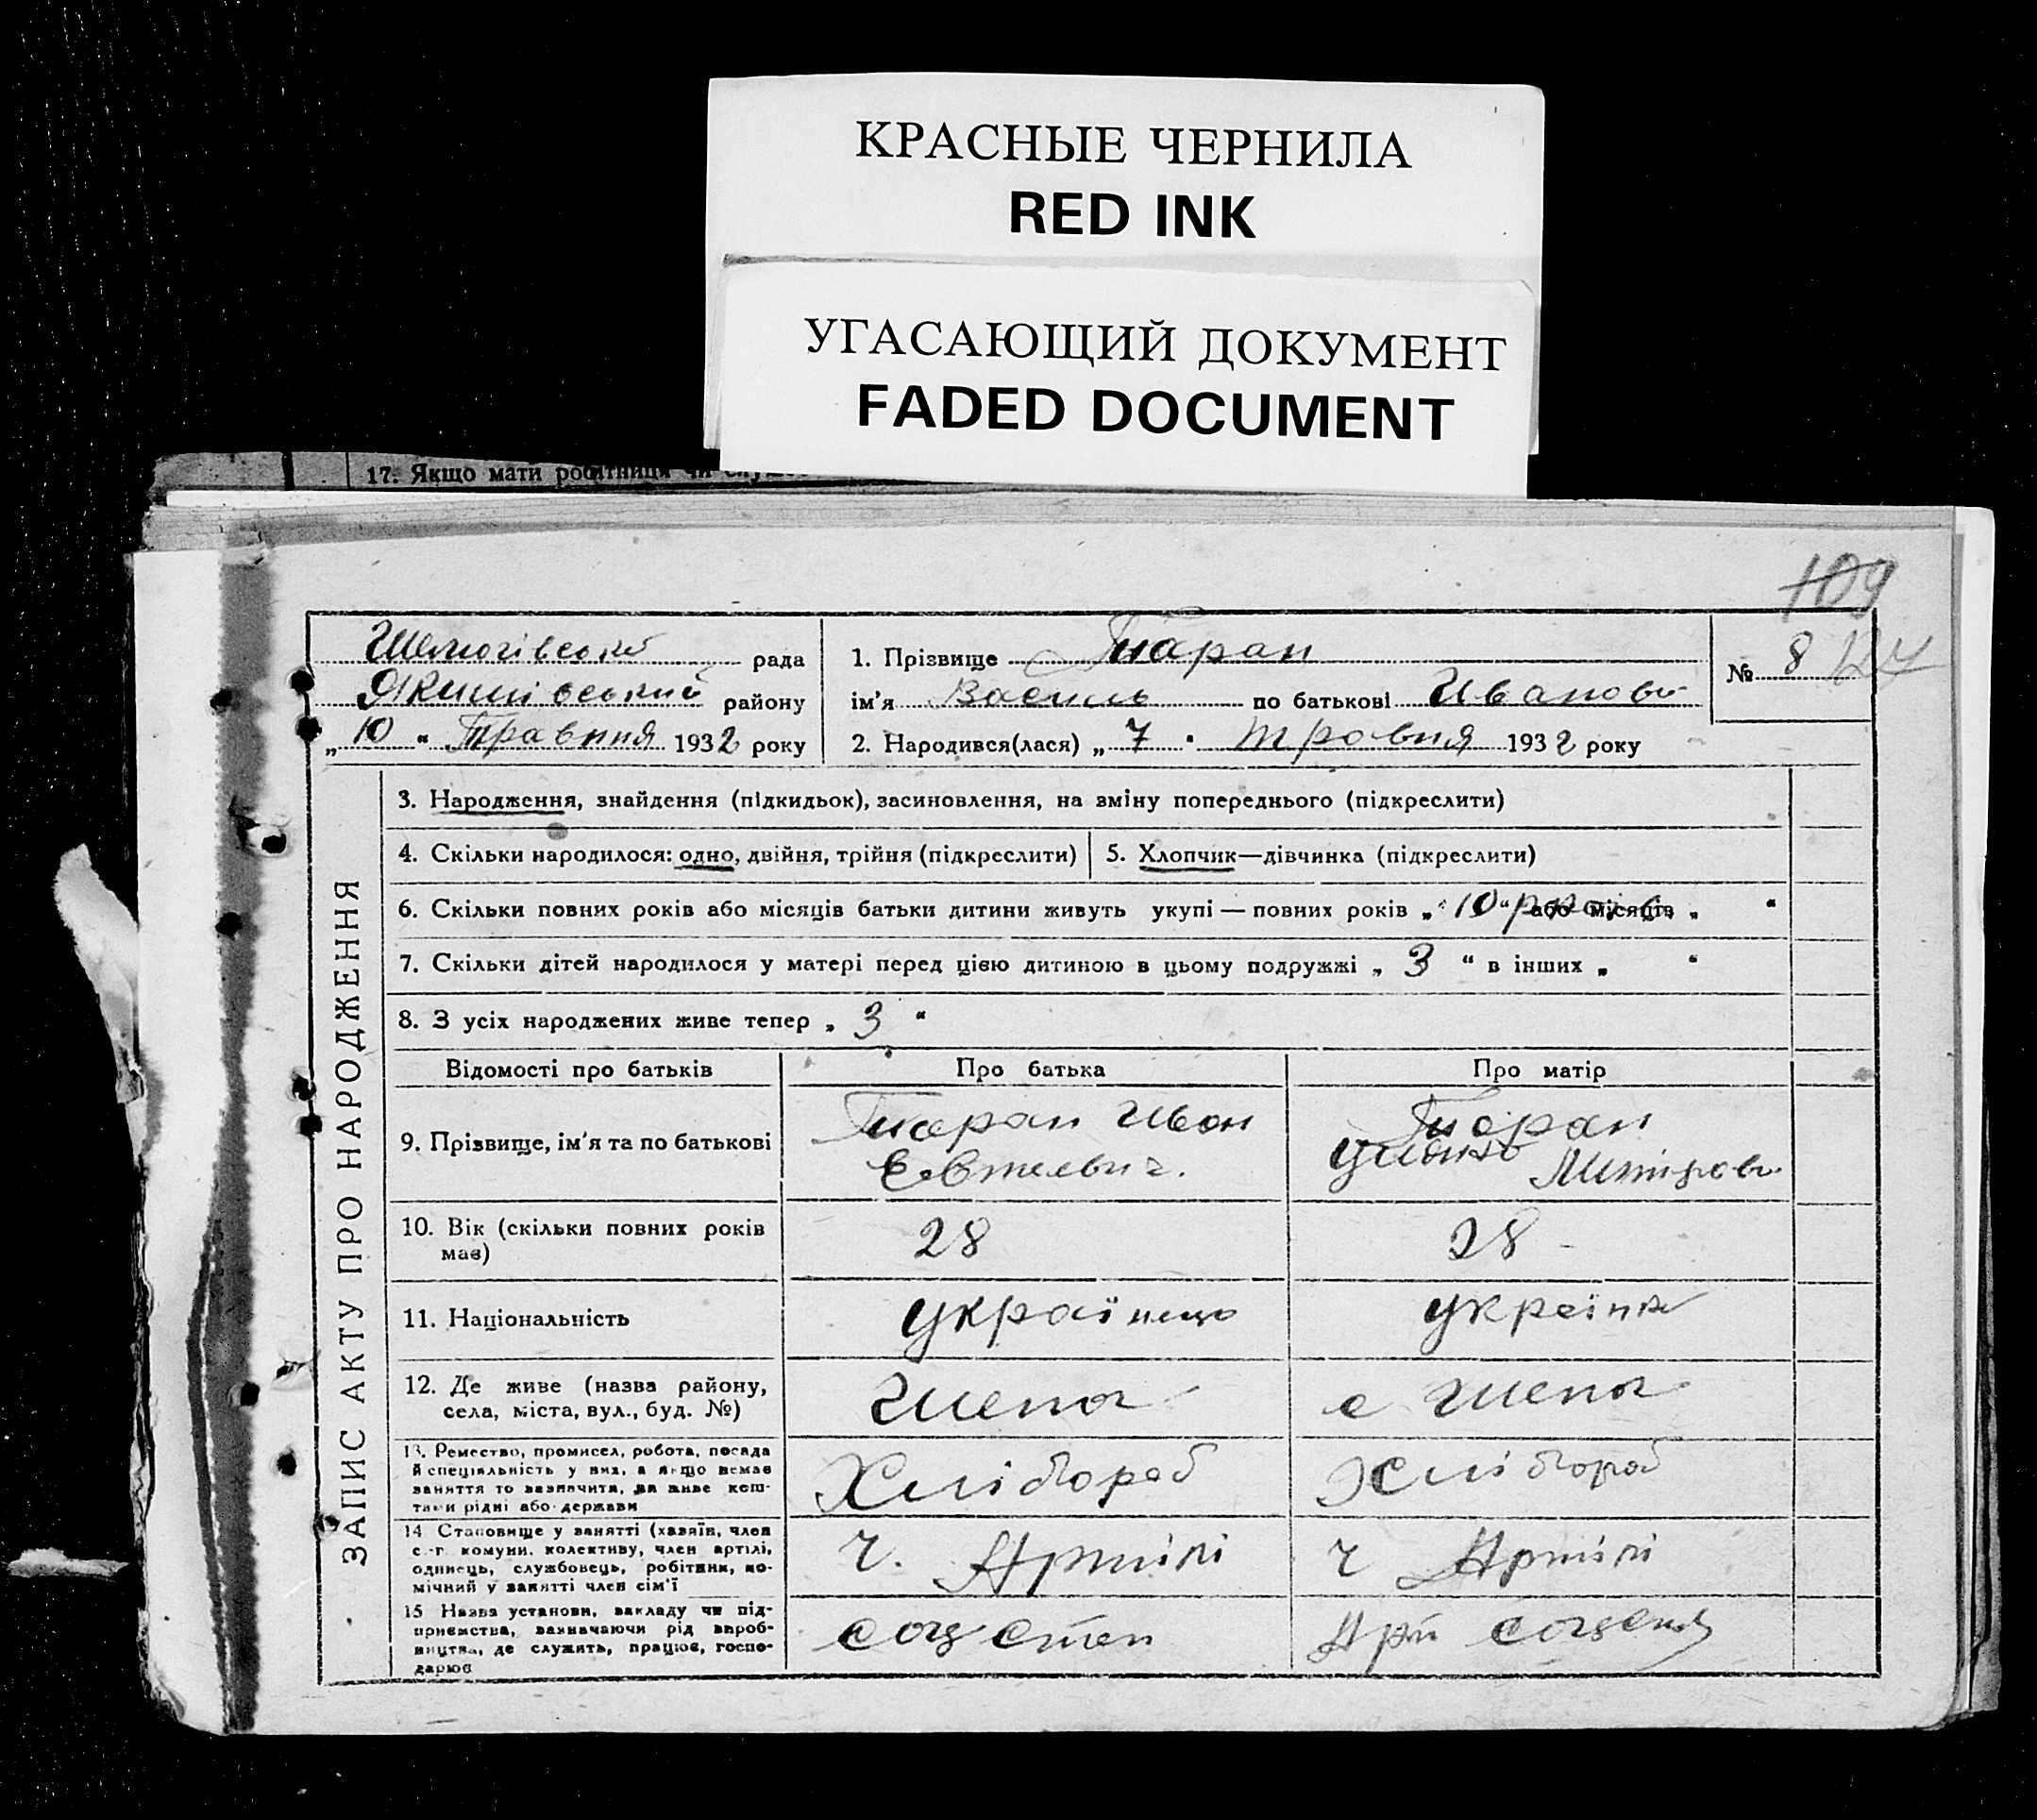 КРАСНЫЕ ЧЕРНИЛА
RED INK
УГАСАЮЩИЙ ДОКУМЕНТ
FADED DOCUMENT
17. Якщо мати робітниця чи
109
рада
1. Прізвище Таран
№ 8 127
району
ім'я Василь по батькові Иванови
„ 10 " Травния 1932 року
2. Народився(лася) „ 7 " травия 1932 року
ЗАПИС АКТУ ПРО НАРОДЖЕННЯ
3. Народження, знайдення (підкидьок), засиновлення, на зміну попереднього (підкреслити)
4. Скільки народилося: одно, двійня, трійня (підкреслити)
5. Хлопчик—дівчинка (підкреслити)
6. Скільки повних років або місяців батьки дитини живуть укупі — повних років „ 10 " або місяців „ "
7. Скільки дітей народилося у матері перед цією дитиною в цьому подружжі „ 3 " в інших „ "
8. З усіх народжених живе тепер „ 3 "
Відомості про батьків
Про батька
Про матір
9. Прізвище, ім'я та по батькові
Таран Иван
Таран
10. Вік (скільки повних років
має)
28
28
11. Національність
українець
україн
12. Де живе (назва району,
села, міста, вул., буд. №)
Шелюг
с Шелюг
13. Ремество, промисел, робота, посада
й спеціяльність у них, а якщо немає
заняття то зазначити, на чиє живе кош-
тами рідні або держави
Хлібороб
Хлібороб
14 Становище у занятті (хазяїн, член
с.-г. комуни, колективу, член артілі,
одинець, службовець, робітник, по-
мічний у занятті член сім'ї
ч. Артілі
ч Артілі
15 Назва установи, закладу чи під-
приємства, зазначаючи рід вироб-
ництва, де служить, працює, госпо-
дарює
соц степ
Арт